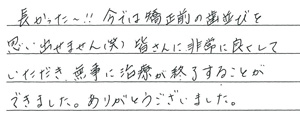 長かった～!! 今では矯正前の歯並びを
思い出せません(笑) 皆さんに非常に良くして
いただき 無事に治療が終了することが
できました。ありがとうございました。